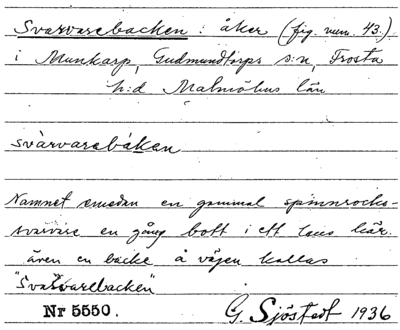 Svarvarebacken : åker (fig. num. 43.)
i Munkarp, Gudmundtorps s:n, Frosta
h:d Malmöhus län
svàrvarebáken
Namnet emedan en gammal spinnrocks-
svarvare en gång bott i ett hus här.
även en backe å vägen kallas
"Svarvarebacken"
Nr 5550.
G. Sjöstedt 1936